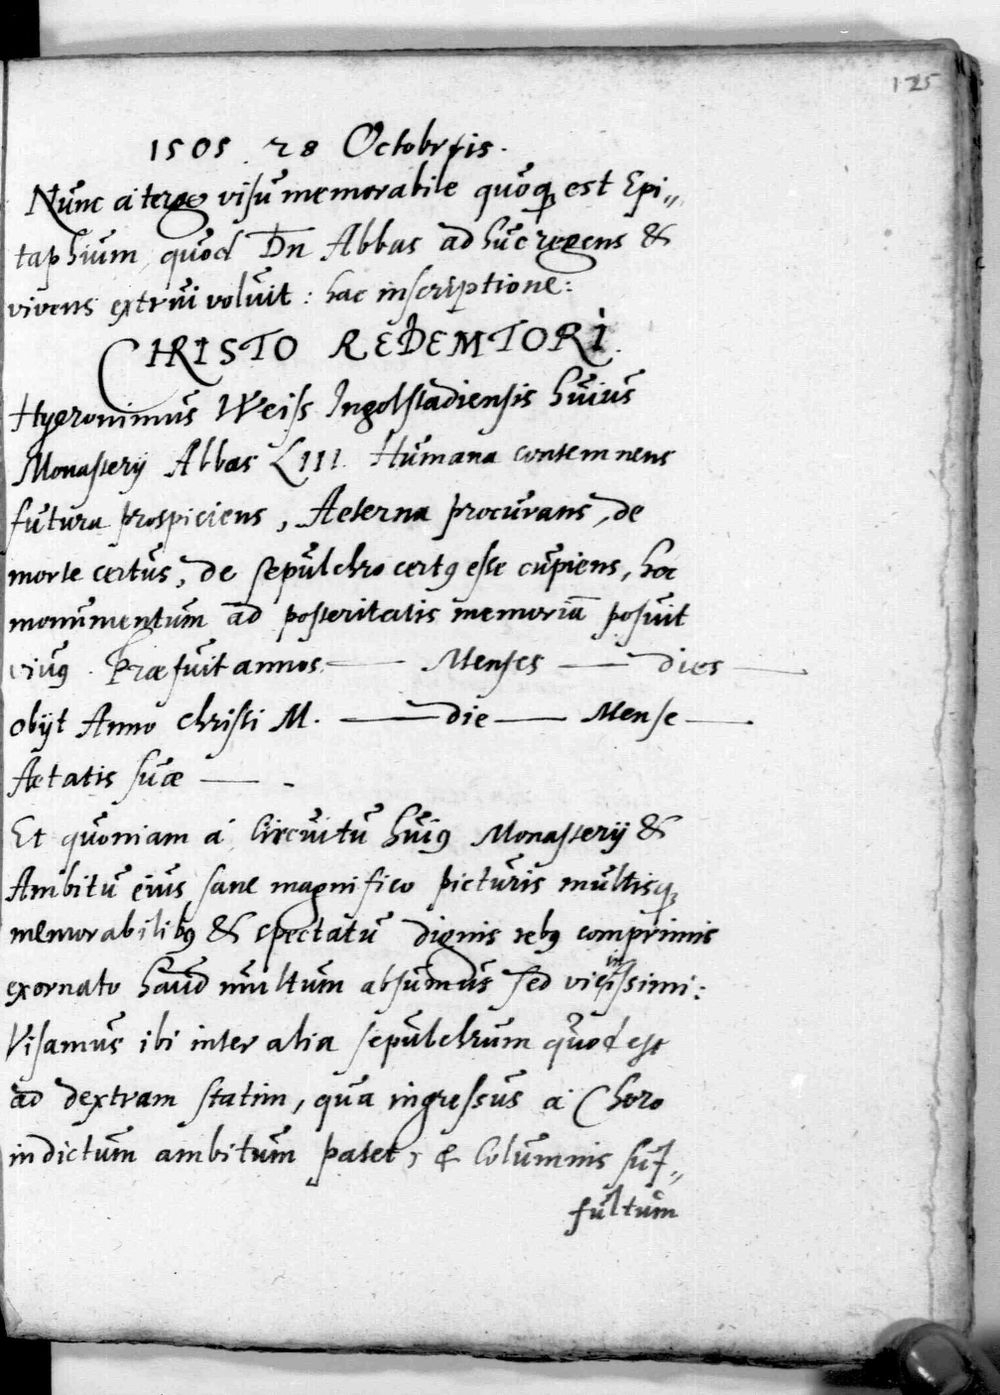 125
1505 28 Octobris.
Nunc a tergo visu memorabile quoq₃ est Epi„
taphium, quod Dn̄ Abbas ad huc regens &
vivens extrui voluit: hac inscriptione:
CHRISTO REDEMTORI.
Hyeronimus Weiss Ingolstadiensis huius
Monasterij Abbas LIII. Humana contemnens
futura prospiciens, Aeterna procurans, de
morte certus, de sepulchro cert9 esse cupiens, hoc
monumentum ad posteritatis memoriā posuit
viv9. Præfuit annos — Menses — dies —
obijt Anno Christi M. — die — Mense —
Aetatis suæ — -
Et quoniam a Circuitu hui9 Monasterij &
Ambitu eius sane magnifico picturis multisq₃
memorabilib9 & spectatu dignis reb9 comprimis
exornato haud multum absumus sed vicissimi:
Visamus ibi inter alia sepulchrum quod est
ad dextram statim, qua ingressus a Choro
in dictum ambitum patet, & Columnis suf„
fultum